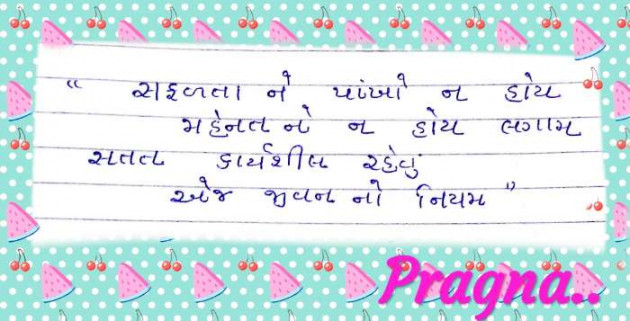 “ સફળતા ને પાંખો ન હોય
મહેનત નો ન હોય લગામ
સતત કાર્યશીલ રહેવું
એજ જીવન નો નિયમ ”
Pragna..